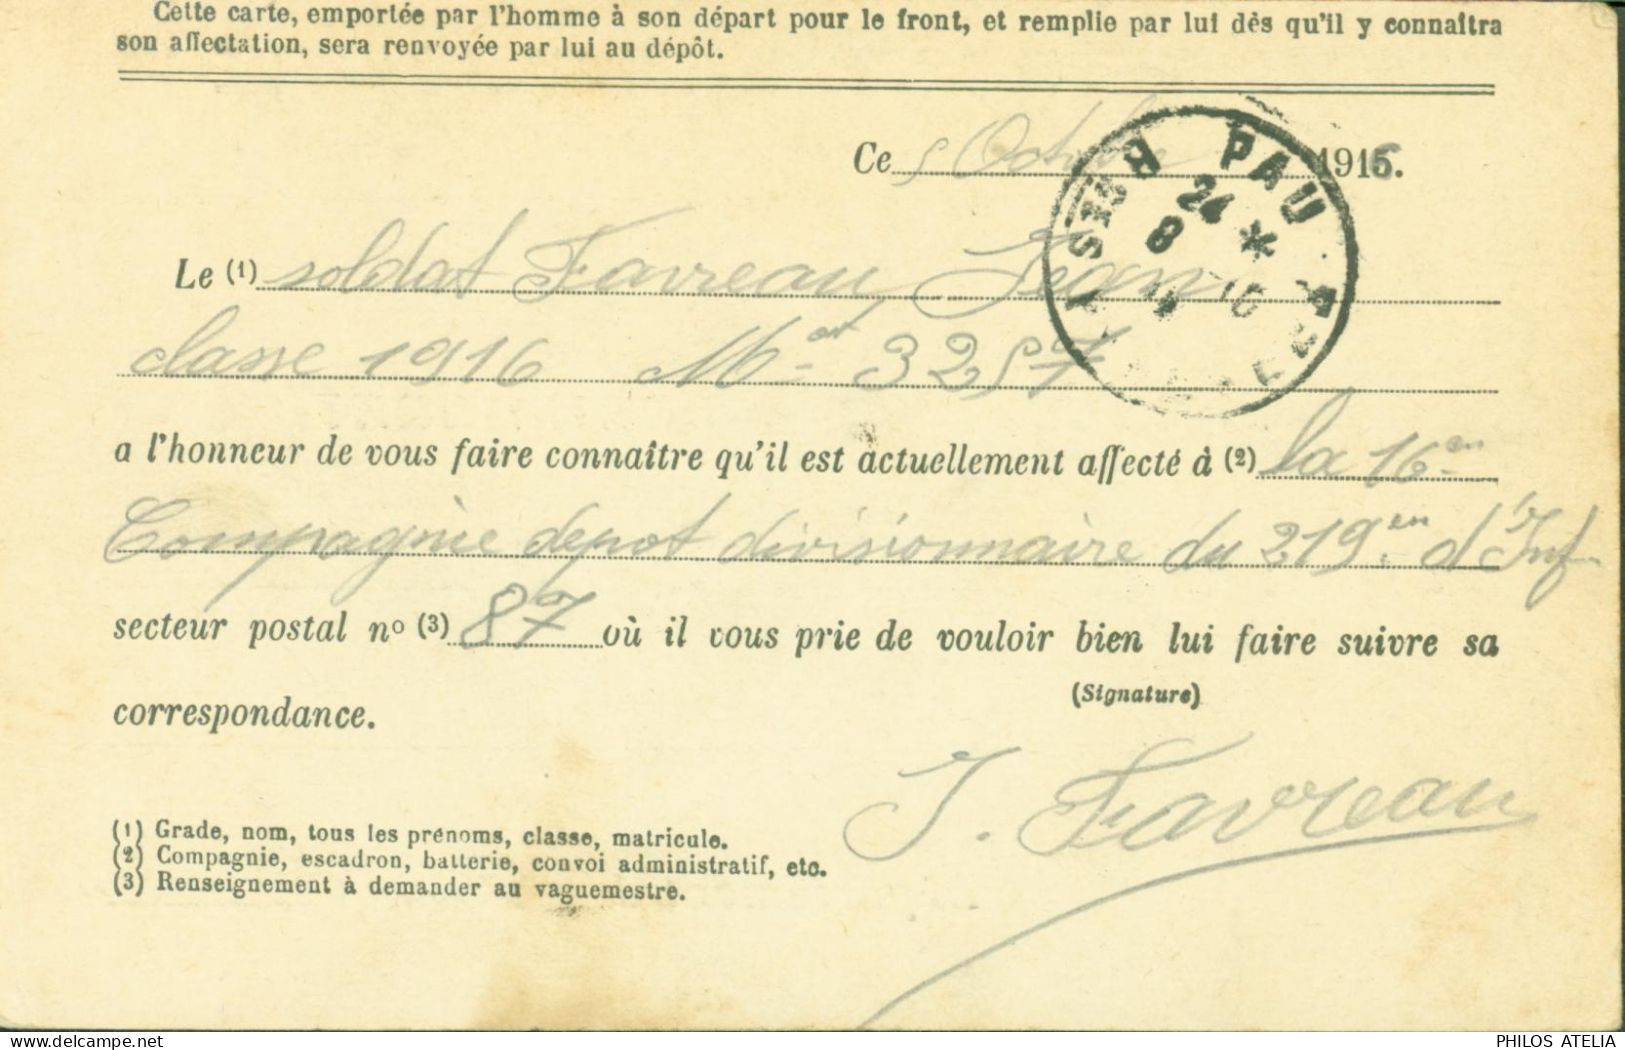 Cette carte, emportée par l'homme à son départ pour le front, et remplie par lui dès qu'il y connaîtra
son affectation, sera renvoyée par lui au dépôt.
Ce 5 Octobre 1915.
PAU
24
8
Le (1) soldat Favreau Jean
classe 1916 Mle 3257
a l'honneur de vous faire connaître qu'il est actuellement affecté à (2) la 16en
Compagnie depot divisionnaire du 219en d'Inf
secteur postal no (3) 87 où il vous prie de vouloir bien lui faire suivre sa
correspondance.
(Signature)
J. Favreau
(1) Grade, nom, tous les prénoms, classe, matricule.
(2) Compagnie, escadron, batterie, convoi administratif, etc.
(3) Renseignement à demander au vaguemestre.
delcampe.net
PHILOS ATELIA